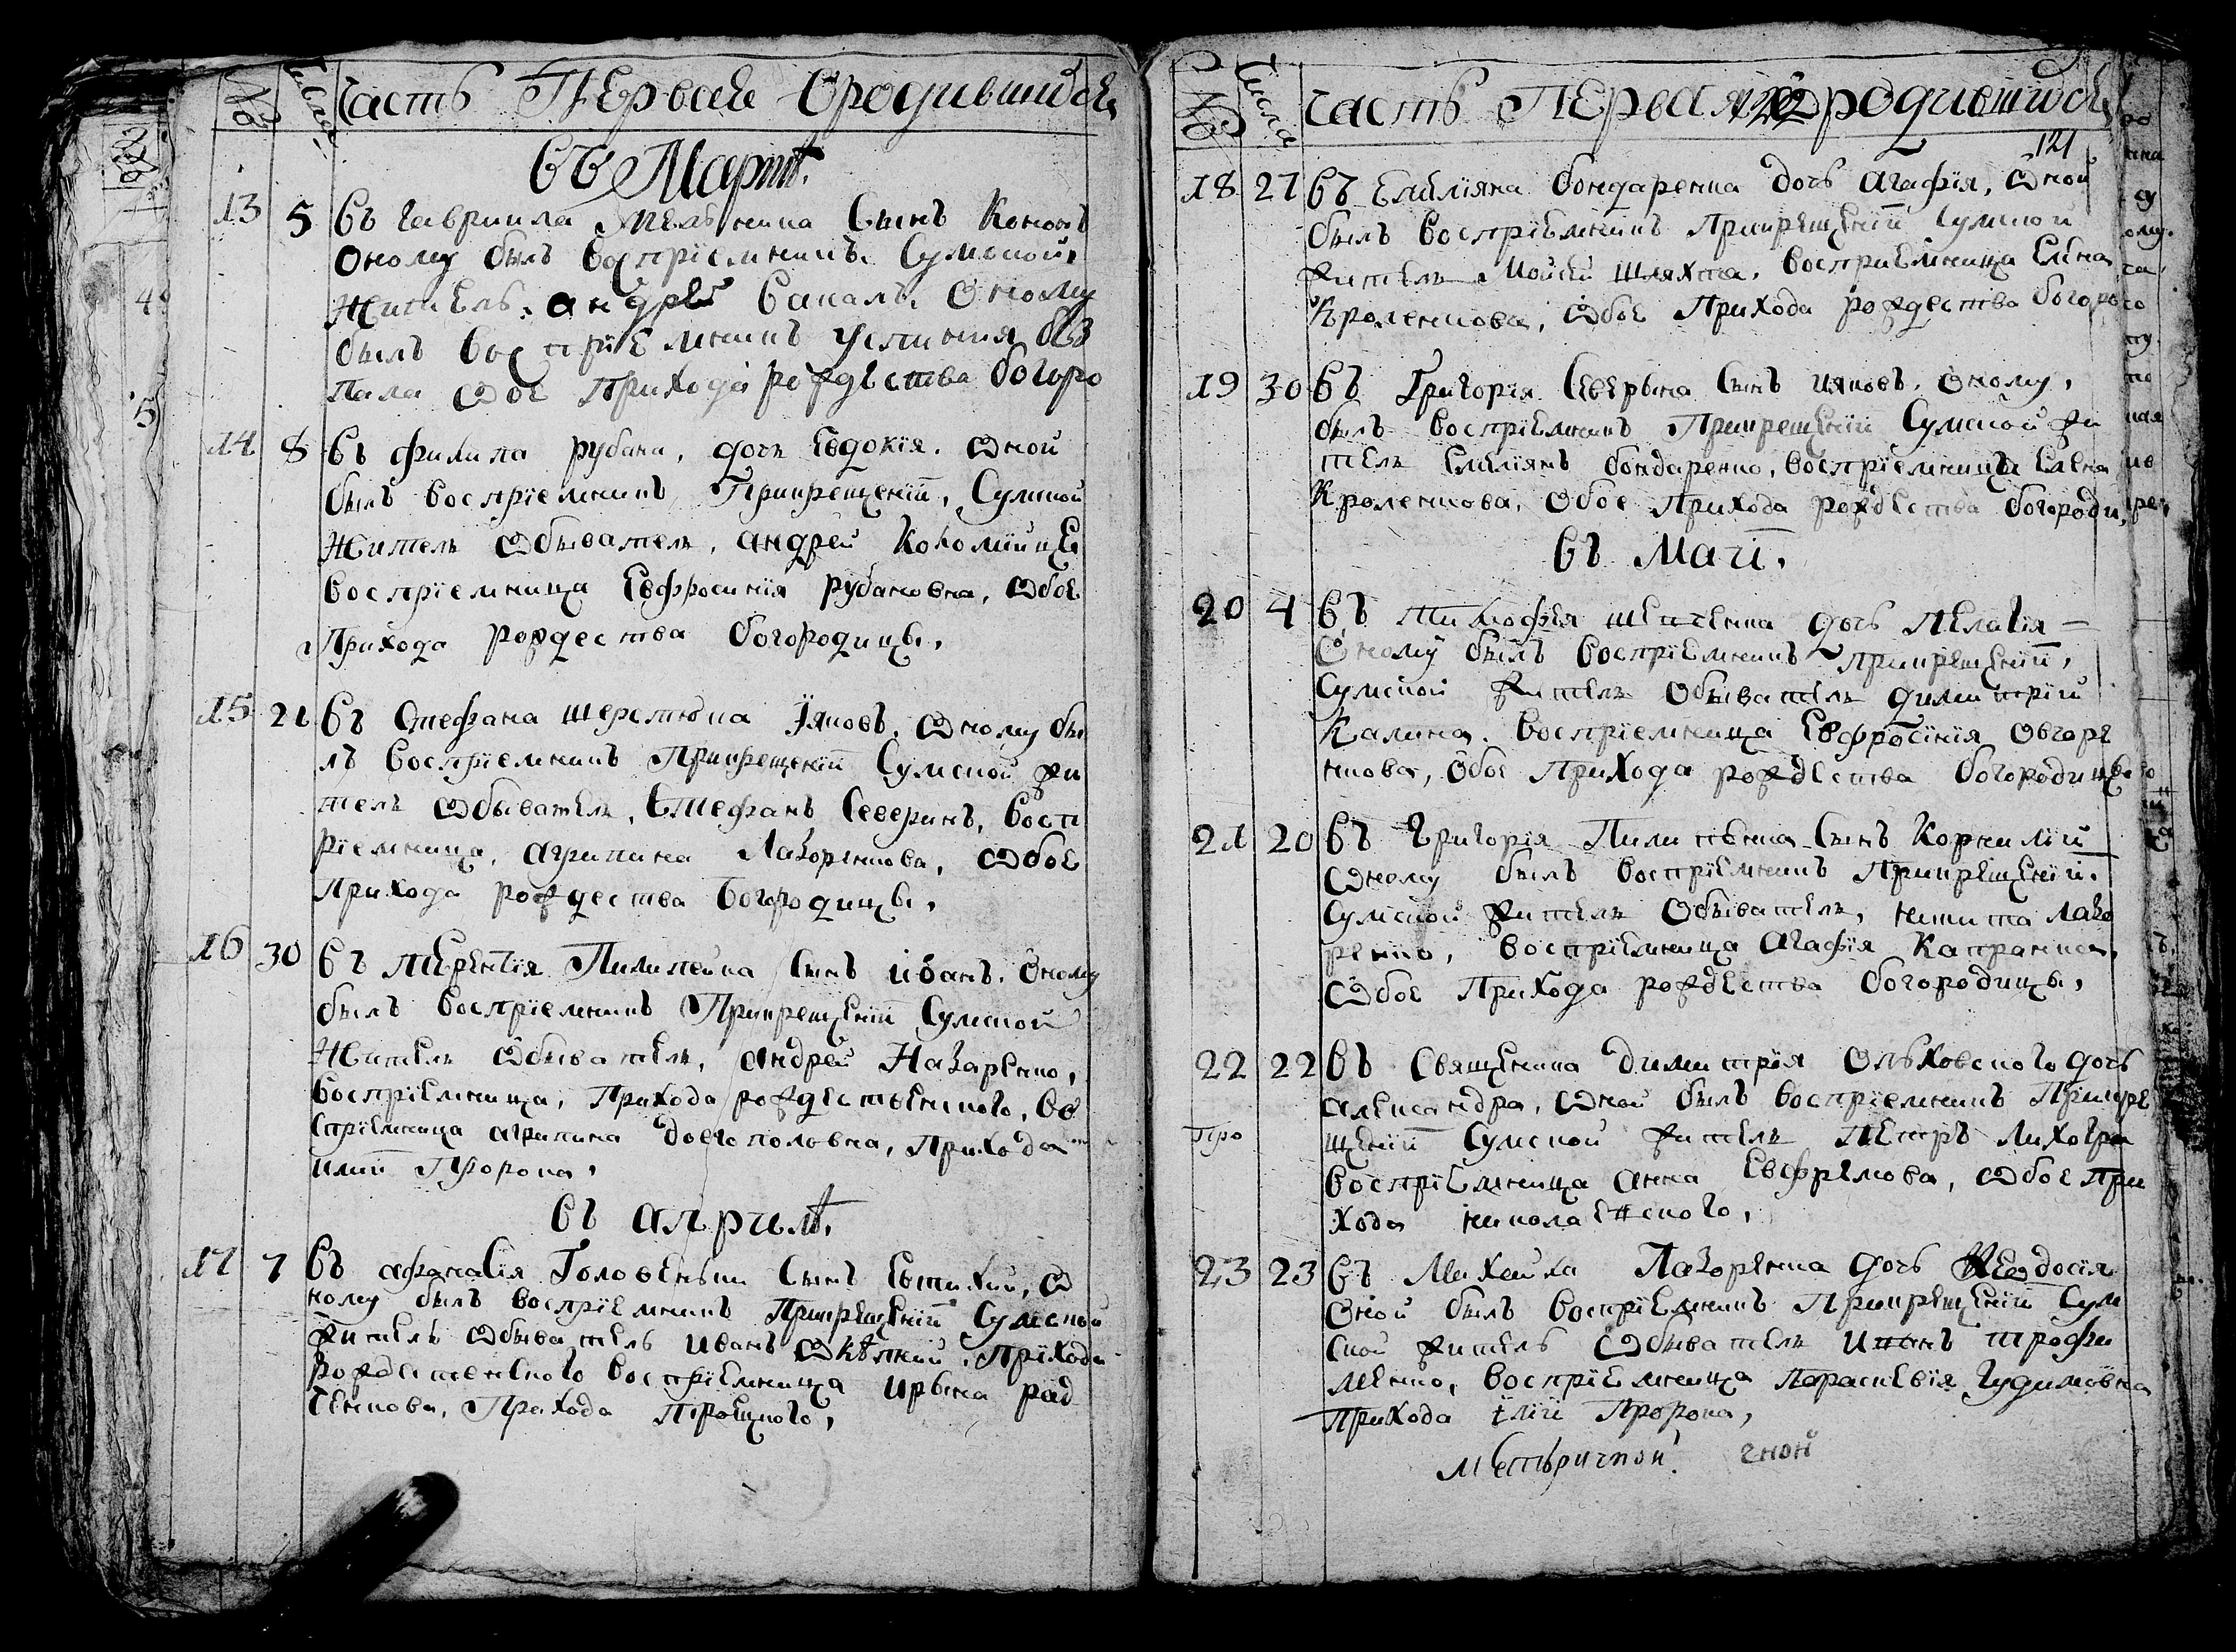 № Числа Часть Первая ѡродившихся
въ Мартѣ.
13 5 въ гавриила Мельника Сынъ Кононъ
Оному былъ воспрїемникъ Сумской
Житель андрей Оному
былъ воспрїемникъ
ѡбое Прихода рождества богоро
14 8 въ филипа рубана, дочь Евдокїя. ѡной
былъ воспрїемникъ Прикрещенїи, Сумской
Житель ѡбыватель, андрей Коломїицъ
воспрїемница Евфросинїя рубановна, ѡбое
Прихода рождества богородицы,
15 21 въ Стефана шерстюка Іяковъ. ѡному бы
лъ воспрїемникъ Прикрещенїи Сумской жи
тель ѡбыватель, Стефанъ Северинъ, Восп
рїемница, агрипина Лазоренкова, ѡбое
Прихода рождества Богородицы,
16 30 въ терентїя Пилипейка Сынъ іванъ. Ѻному
былъ воспрїемникъ Прикрещенїи Сумской
Житель ѡбыватель, андрей Назаренко,
воспрїемница, Прихода рождественского, во
спрїемница агрипина довгополовна, Прихода
илїи Пророка,
въ априлѣ,
17 7 въ афанасїя Головенки Сынъ Евтихий, ѡ
ному былъ воспрїемникъ Прикрещенїи Сумской
житель ѡбыватель иванъ Прихода
рождественского воспрїемница Ирына рад
ченкова, Прихода Троецкого,
№ Числа Часть Первая ѡродившихся
121
18 27 въ Емелїяна бондаренка дочь агафїя, ѡной
былъ воспрїемникъ Прикрещенїи Сумской
житель Мойсей шляхта, воспрїемница Елена
Кроленкова, ѡбое Прихода рождества богоро
19 30 въ Григорїя Северына Сынъ ияковъ. Оному,
былъ воспрїемникъ Прикрещенїи Сумской жи
тель Емелїянъ бондаренко, воспрїемница Елена
Кроленкова, Обое Прихода рождества богороди,
въ Маїи,
20 4 въ тимофея шепченка дочь пелагїя
Ѻному былъ воспрїемникъ прикрещенїи,
Сумской житель Обыватель димитрїй
Калина. воспрїемница Евфросїнїя Овчаре
нкова, Ѻбое Прихода рождества богородицы
21 20 въ Григорїя Пилипенка Сынъ Корнилїй
ѡному былъ воспрїемникъ Прикрещенїи.
Сумской житель Обыватель, никита лазо
ренко, воспрїемница агафїя Капранка,
ѡбое Прихода рождества богородицы,
22 22 въ Священика димитрїя Ольховского дочь
александра, ѡной былъ воспрїемникъ Прикре
щенїи Сумской житель Петръ Лихогра
Про
воспрїемница анна Евефремова, ѡбое при
хода николаевского,
23 23 въ Михейка Лазоренка дочь Феодосїя
Оной былъ воспрїемникъ Прикрещенїи Сум
ской житель ѡбыватель Иванъ трофи
менко, воспрїемница параскевїя Чудиловна
прихода ілїи Пророка,
Метърической